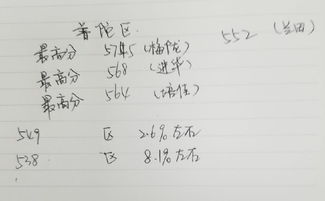 普陀区
552（兰田）
最高分 574.5（梅陇）
最高分 568（进华）
最高分 564（培佳）
549 区 2.6%左右
538 区 8.1%左右